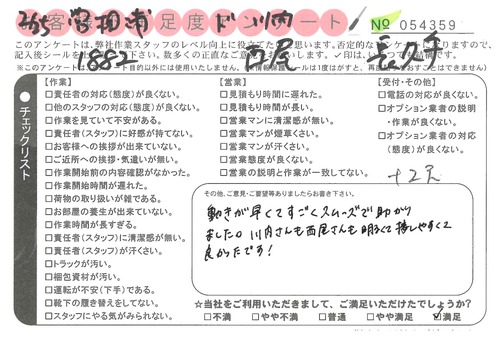 お客様満足度アンケート
No 054359
265 宮担浦 ド 川内
1882 西尾 長久手
このアンケートは、弊社作業スタッフのレベル向上に役立てたいと思います。否定的な
【作業】
□責任者の対応(態度)が良くない。
□他のスタッフの対応(態度)が良くない。
□作業を見ていて不安がある。
□責任者(スタッフ)に好感が持てない。
□お客様への挨拶が出来ていない。
□ご近所への挨拶・気遣いが無い。
□作業開始前の内容確認がなかった。
□作業開始時間が遅れた。
□荷物の取り扱いが雑である。
□お部屋の養生が出来ていない。
□作業時間が長すぎる。
□責任者(スタッフ)に清潔感が無い。
□責任者(スタッフ)が汗くさい。
□トラックが汚い。
□梱包資材が汚い。
□運転が不安(下手)である。
□靴下の履き替えをしてない。
□スタッフにやる気がみられない。
【営業】
□見積もり時間に遅れた。
□見積もり時間が長い。
□営業マンに清潔感が無い。
□営業マンが煙草くさい。
□営業マンが汗くさい。
□営業態度が良くない。
□営業の説明と作業が一致してない。
【受付・その他】
□電話の対応が良くない。
□オプション業者の説明
・作業が良くない。
□オプション業者の対応
(態度)が良くない。
チェックリスト
+2点
その他、ご意見・ご要望等ありましたらお書き下さい。
動きが早くてすごくスムーズで助かり
ました。川内さんも西尾さんも明るくて接しやすくて
良かったです!
☆当社をご利用いただきまして、ご満足いただけたでしょうか?
□不満 □やや不満 □普通 □やや満足 ☑満足